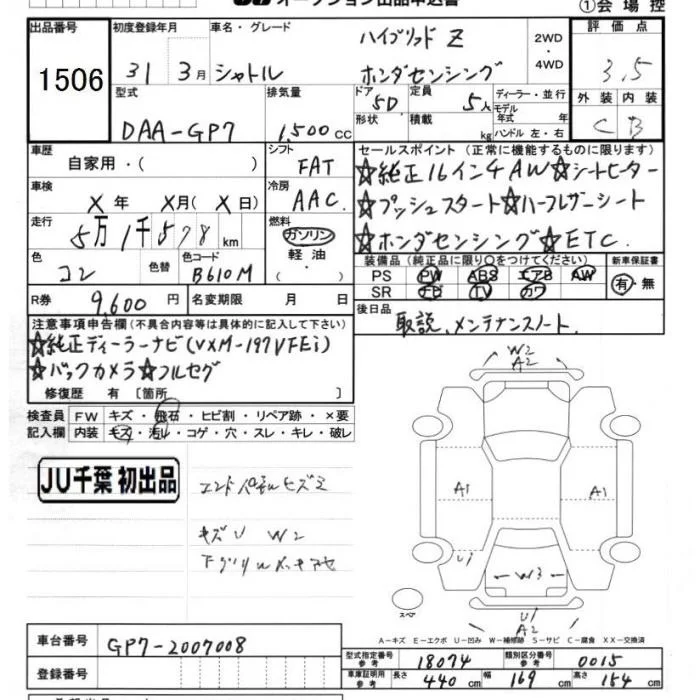 オークション出品申込書
①会場控
出品番号 1506
初度登録年月 31年 3月
車名・グレード シャトル ハイブリッド Z ホンダセンシング
2WD ・ 4WD
評価点 3.5
型式 DAA-GP7
排気量 1,500 cc
ドア 形状 5D
定員 5人
積載 kg
ディーラー・並行
モデル年式 年
ハンドル 左・右
外装 C
内装 B
車歴 自家用・( )
シフト FAT
セールスポイント (正常に機能するものに限ります)
☆純正16インチAW☆シートヒーター
☆プッシュスタート☆ハーフレザーシート
☆ホンダセンシング☆ETC.
車検 X年 X月(X日)
冷房 AAC
走行 5万1千578km
燃料 ガソリン 軽油 ・( )
色 コン
色替
色コード B610M
装備品 (純正品に限り○をつけてください)
PS PW ABS エアB AW
SR ナビ TV カワ
新車保証書 有・無
R券 9,600円
名変期限 月 日
後日品 取説、メンテナンスノート.
注意事項申告欄 (不具合内容等は具体的に記入して下さい)
☆純正ディーラーナビ(VXM-197VFEi)
☆バックカメラ☆フルセグ
修復歴 有 〔箇所 〕
検査員記入欄
FW キズ・飛石・ヒビ割・リペア跡・×要
内装 キズ・汚れ・コゲ・穴・スレ・キレ・破レ
JU千葉 初出品
エンドパネルヒズミ
キズU W2
W2
A2
A1
A1
U1
W3
U1
A2
スペア
A-キズ E-エクボ U-凹み W-補修跡 S-サビ C-腐食 XX-交換済
車台番号 GP7-2007008
登録番号
型式指定番号 参考 18074
類別区分番号 参考 0015
車庫証明用 参考 長さ 440cm 幅 169cm 高さ 154cm